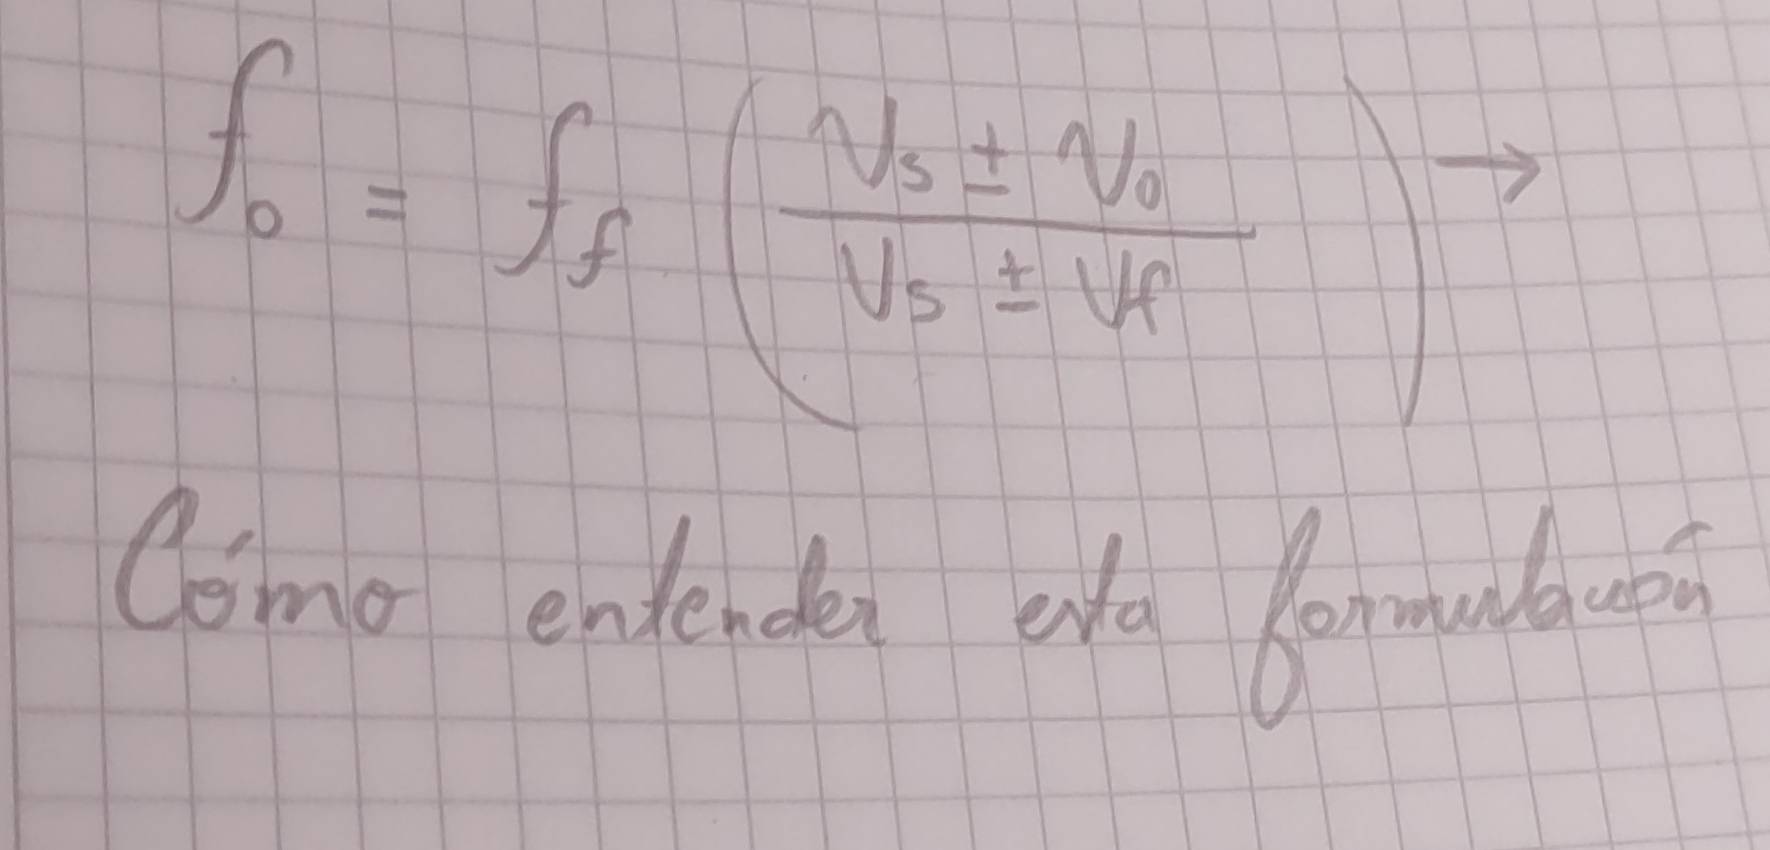 f₀ = f_f ( (Vs ± V₀) / (Vs ± Vf) ) →
Cómo entender esta formulación